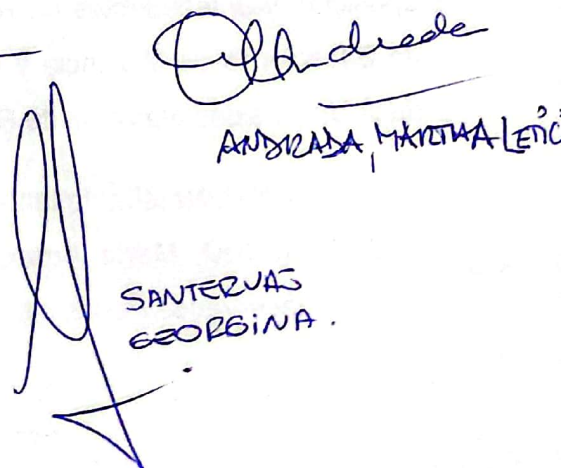 Andrada
ANDRADA, MARTHA LETIC
SANTERVAS
GEORGINA.